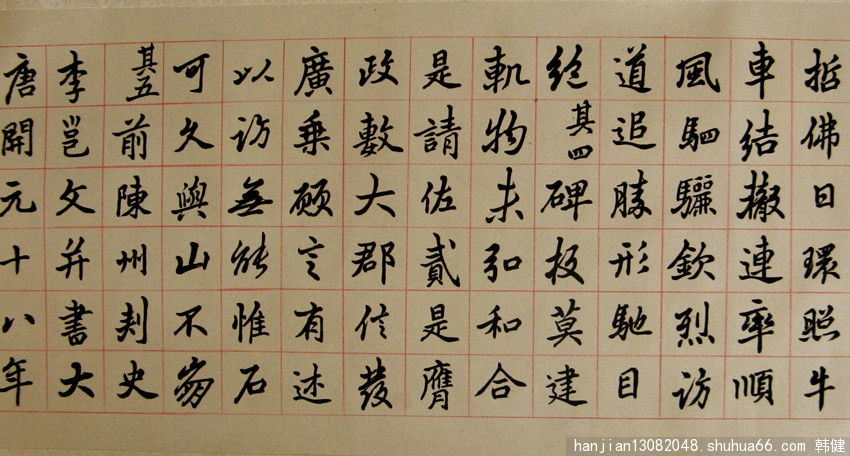 哲佛日環照牛
車結撤連率順
風駟驪欽烈訪
道追勝形馳目
絕其四碑板莫建
軌物未弘和合
是請佐貳是膺
政敷大郡信發
廣乘願言有述
以訪無能惟石
可久與山不崩
其五前陳州刾史
李邕文并書大
唐開元十八年
hanjian13082048.shuhua66.com 韩健